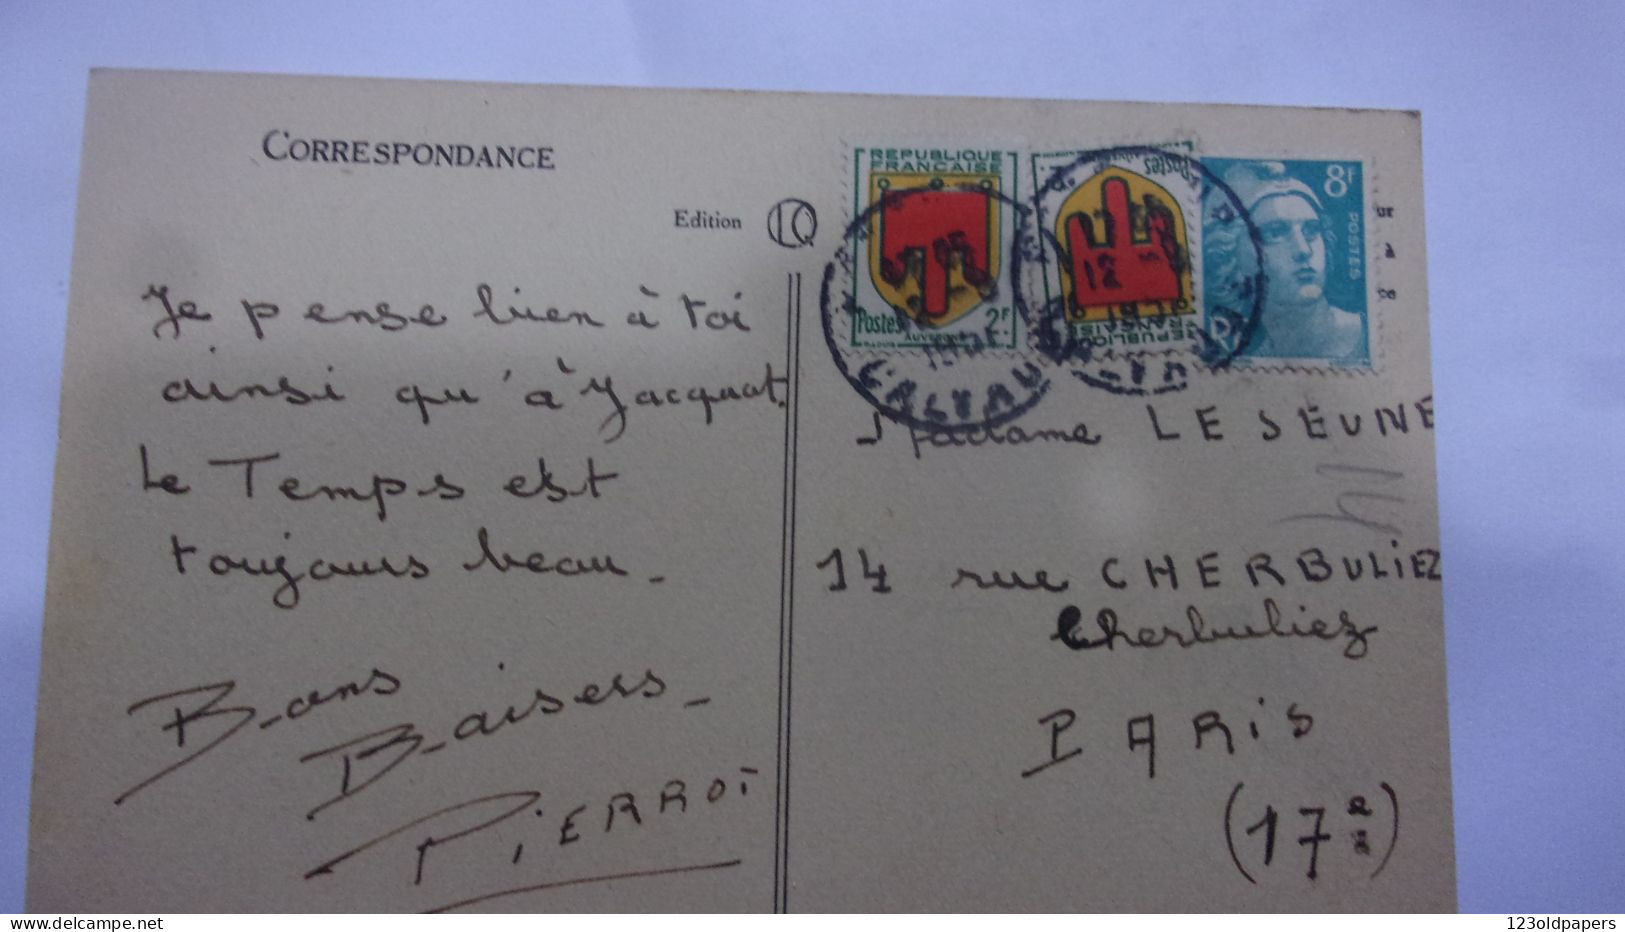 CORRESPONDANCE
Edition
Je pense bien à toi
ainsi qu'à Jacquot.
Le Temps est
toujours beau.
Bons
Baisers
PIERROT
REPUBLIQUE
FRANCAISE
Postes 2F
Postes
REPUBLIQUE
FRANCAISE
8F
POSTES
CALVADOS
ur
à
ce
Madame LE SEUNE
14 rue CHERBULIEZ
Cherbuliez
PARIS
(17e)
123oldpapers